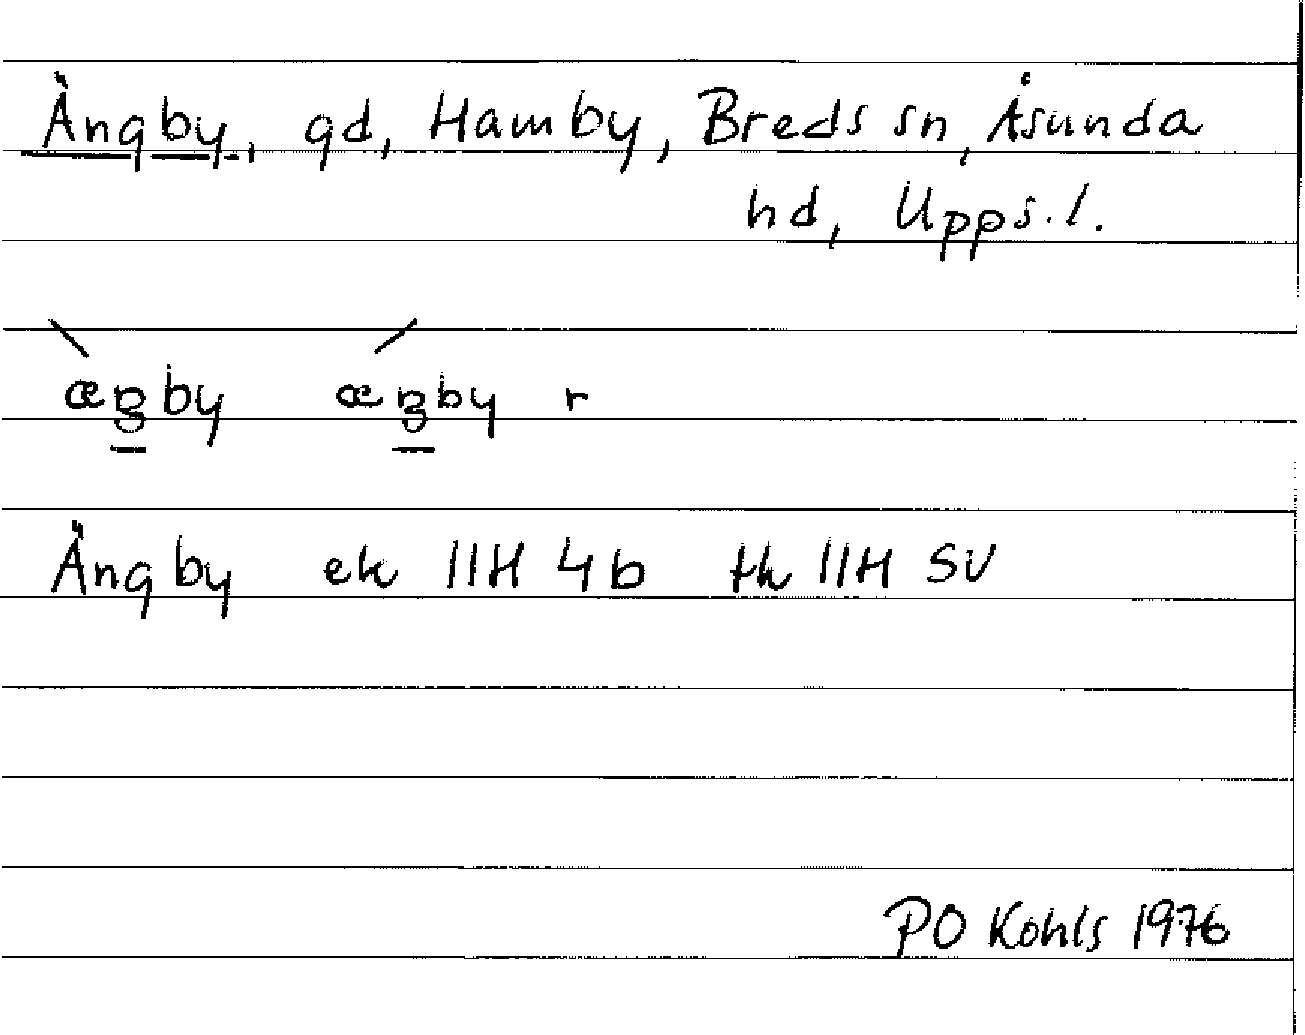 Ängby, gd, Hamby, Breds sn, Åsunda
hd, Upps. l.
Ängby ek 11H 4b tk 11H SV
PO Kohls 1976